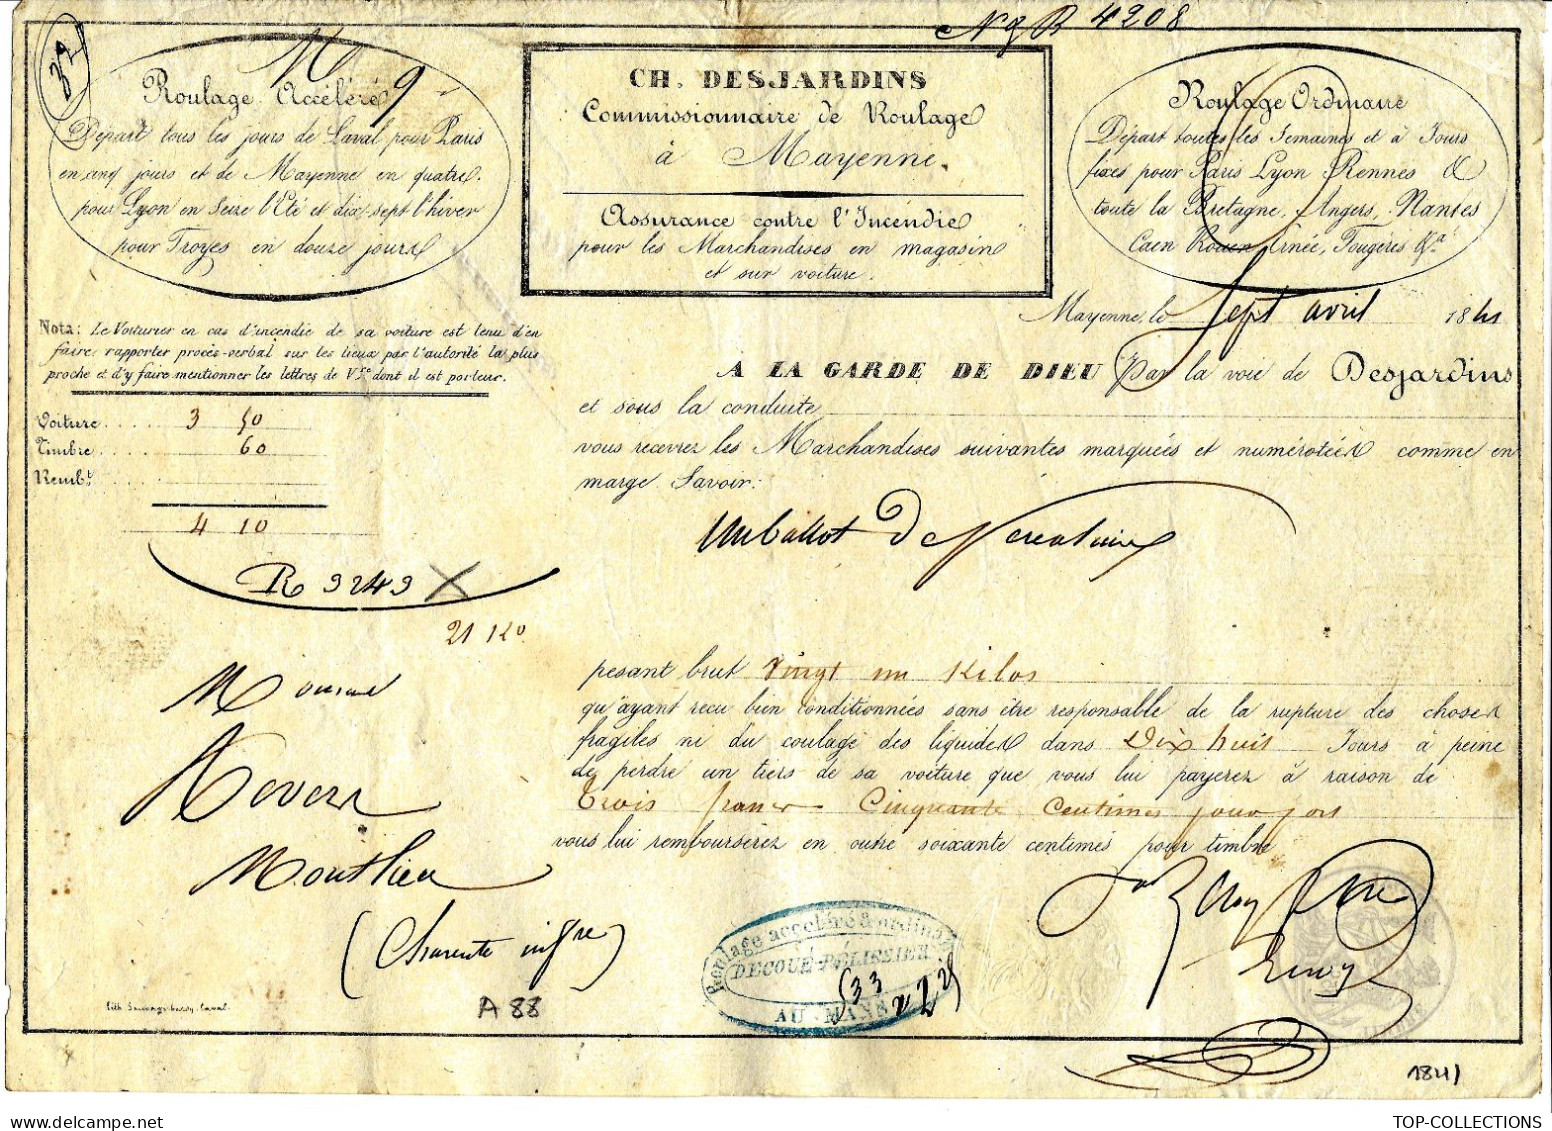 N g R 4208
32
M 9
Roulage Accéléré
Départ tous les jours de Laval pour Paris
en cinq jours et de Mayenne en quatre.
pour Lyon en Seize l'Eté et dix-sept l'hiver
pour Troyes en douze jours
CH. DESJARDINS
Commissionnaire de Roulage
à Mayenne.
Assurance contre l'Incendie
pour les Marchandises en magasin
et sur voiture.
Roulage Ordinaire
Départ toutes les Semaines et à Jours
fixes pour Paris Lyon Rennes &
toute la Bretagne, Angers, Nantes
Caen Rouen Ernée, Fougères &ª
Mayenne, le Sept avril 1841
Nota: Le Voiturier en cas d'incendie de sa voiture est tenu d'en
faire rapporter procès-verbal sur les lieux par l'autorité la plus
proche et d'y faire mentionner les lettres de Vre dont il est porteur.
A LA GARDE DE DIEU Par la voie de Desjardins
et sous la conduite
vous recevrez les Marchandises suivantes marquées et numérotées comme en
marge. Savoir:
Voiture 3 50
Timbre 60
Rembt
4 10
R 3243 X
21 Ko
Un ballot de
pesant brut Vingt un Kilos
qu'ayant reçu bien conditionnées sans être responsable de la rupture des choses
fragiles ni du coulage des liquides dans Dix huit Jours à peine
de perdre un tiers de sa voiture que vous lui payerez à raison de
Trois francs Cinquante Centimes
vous lui rembourserez en outre soixante centimes pour timbre
Monsieur
Montlieu
(Charente infre)
A 88
Roulage accéléré & ordinaire
DECOUR-PÉLISSIER
AU MANS
Lith. Laval.
1841
TOP-COLLECTIONS